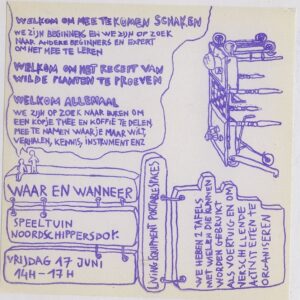 WELKOM OM MEE TE KOMEN SCHAKEN
WE ZIJN BEGINNERS EN WE ZIJN OP ZOEK
NAAR ANDERE BEGINNERS EN EXPERT
OM HET MEE TE LEREN
WELKOM OM HET RECEPT VAN
WILDE PLANTEN TE PROEVEN
WELKOM ALLEMAAL
WE ZIJN OP ZOEK NAAR BUREN OM
EEN KOPJE THEE EN KOFFIE TE DELEN,
MEE TE NAMEN WAAR JE MAAR WILT,
VERHALEN, KENNIS, INSTRUMENT ENZ
WAAR EN WANNEER
SPEELTUIN
NOORDSCHIPPERSDOK
VRIJDAG 17 JUNI
14H - 17 H
LIVING EQUIPMENT PORTABLE SPACES
WE HEBBEN 2 TAFELS
MET WIELEN DIE KUNNEN
WORDEN GEBRUIKT
ALS VOERTUIG EN OM
VERSCHILLENDE
ACTIVITEITEN TE
ORGANISEREN